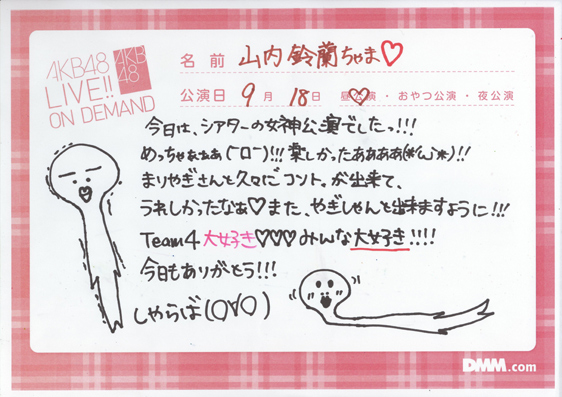 AKB48
LIVE!!
ON DEMAND
AKB
48
名前 山内鈴蘭ちゃま♡
公演日 9月18日 昼公演・おやつ公演・夜公演
今日は、シアターの女神公演でしたっ!!!
めっちゃぁぁぁぁ(￣ロ￣)!!!楽しかったあああぁ(*'ω'*)!!
まりやぎさんと久々にコント。が出来て、
うれしかったなぁ♡また、やぎしゃんと出来ますように!!!
Team4大好き♡♡♡みんな大好き!!!!
今日もありがとう!!!
しゃらば(○∀○)
DMM.com